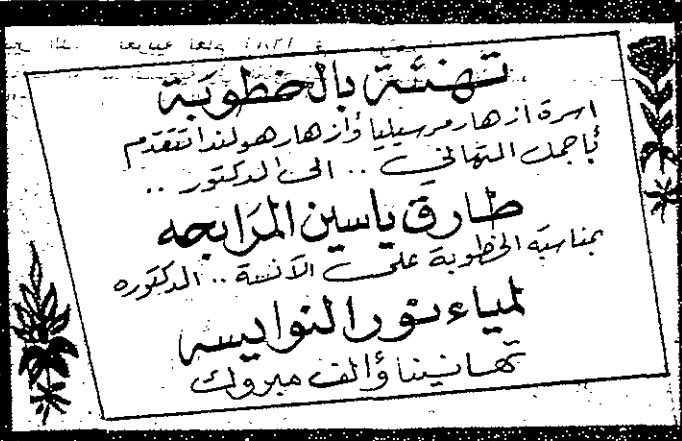 تهنئة بالخطوبة
اسرة ازهار مرسيليا وأزهار هولندا تتقدم
بأجمل التهاني .. الى الدكتور ..
طارق ياسين المرابحه
بمناسبة الخطوبة على الآنسة .. الدكتوره
لمياء نور النوايسه
تهانينا وألف مبروك